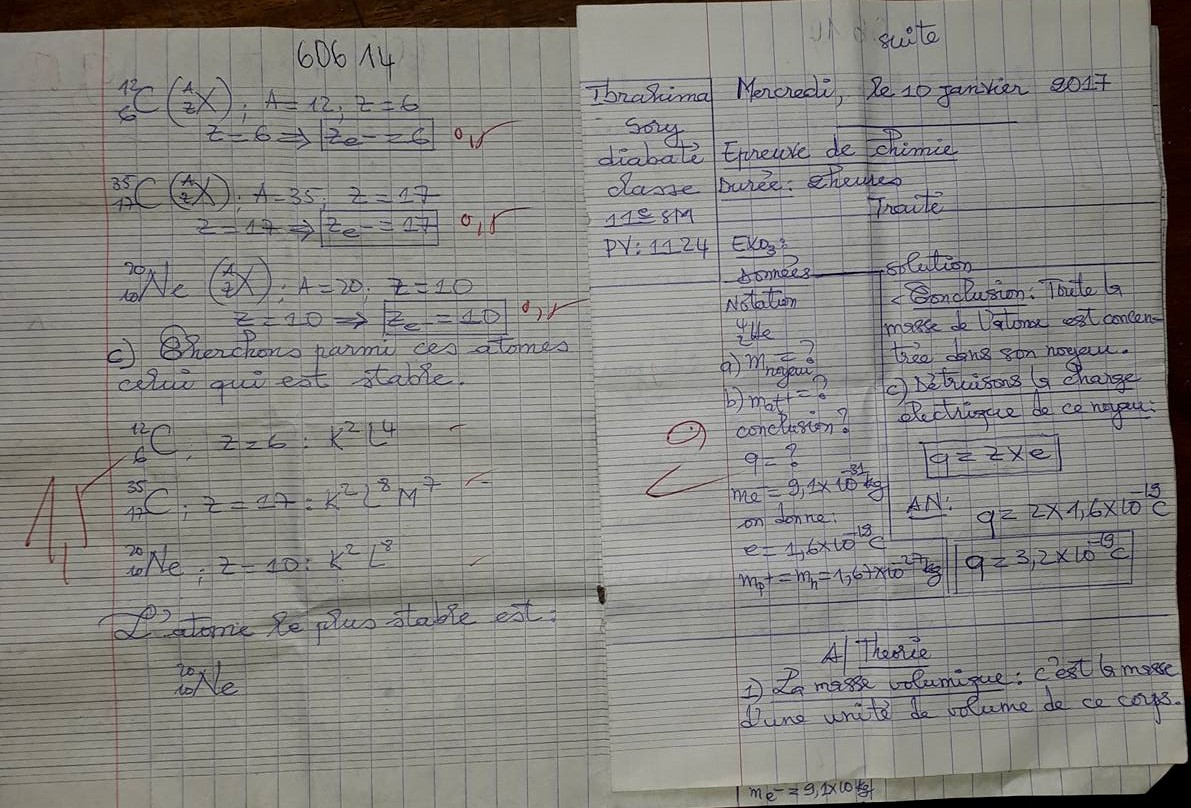 60614
¹²₆C (ᴬzX) ; A = 12 ; Z = 6
Z = 6 ⟹ Ze⁻ = 6 0,5
³⁵₁₇C (ᴬzX) ; A = 35 ; Z = 17
Z = 17 ⟹ Ze⁻ = 17 0,5
²⁰₁₀Ne (ᴬzX) ; A = 20 ; Z = 10
Z = 10 ⟹ Ze⁻ = 10 0,5
c) Cherchons parmi ces atomes
celui qui est stable.
¹²₆C ; Z = 6 : K² L⁴
³⁵₁₇C ; Z = 17 : K² L⁸ M⁷
1,5
²⁰₁₀Ne ; Z = 10 : K² L⁸
L'atome le plus stable est :
²⁰₁₀Ne
suite
Ibrahima
Sory
diabaté
classe
11e SM
PV : 1124
Mercredi, le 10 janvier 2017
Epreuve de chimie
Durée : 2heures
Traité
Exo₃ :
Données
Notation
⁴₂He
a) m noyau = ?
b) mat = ?
conclusion ?
q = ?
me = 9,1x10⁻³¹kg
on donne :
e = 1,6x10⁻¹⁹C
mp+ = mn = 1,67x10⁻²⁷kg
solution
- Conclusion : Toute la
masse de l'atome est concen-
trée dans son noyau.
c) Détruisons la charge
électrique de ce noyau :
q = z x e
AN :
q = 2 x 1,6 x 10⁻¹⁹C
q = 3,2 x 10⁻¹⁹C
A/ Theorie
1) La masse volumique : c'est la masse
d'une unité de volume de ce corps.
me⁻ = 9,1x10 kg